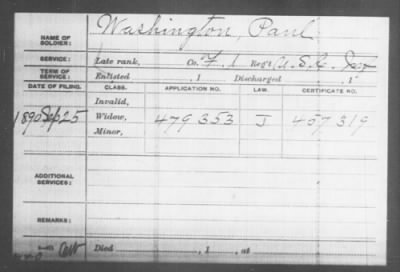 NAME OF SOLDIER: Washington, Paul
SERVICE: Late rank, Co. F. 1 Reg't U.S.C. Inf
TERM OF SERVICE: Enlisted , 1 Discharged , 1
DATE OF FILING. CLASS. APPLICATION NO. LAW. CERTIFICATE NO.
Invalid,
1890 Sep 25 Widow, 479 353 J 457 319
Minor,
ADDITIONAL SERVICES:
REMARKS:
Died , 1 , at